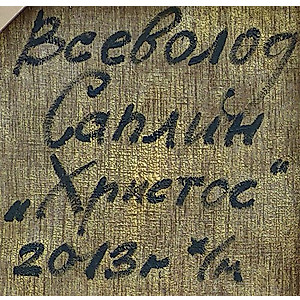 Всеволод
Саплин
„Христос“
2013г х/м